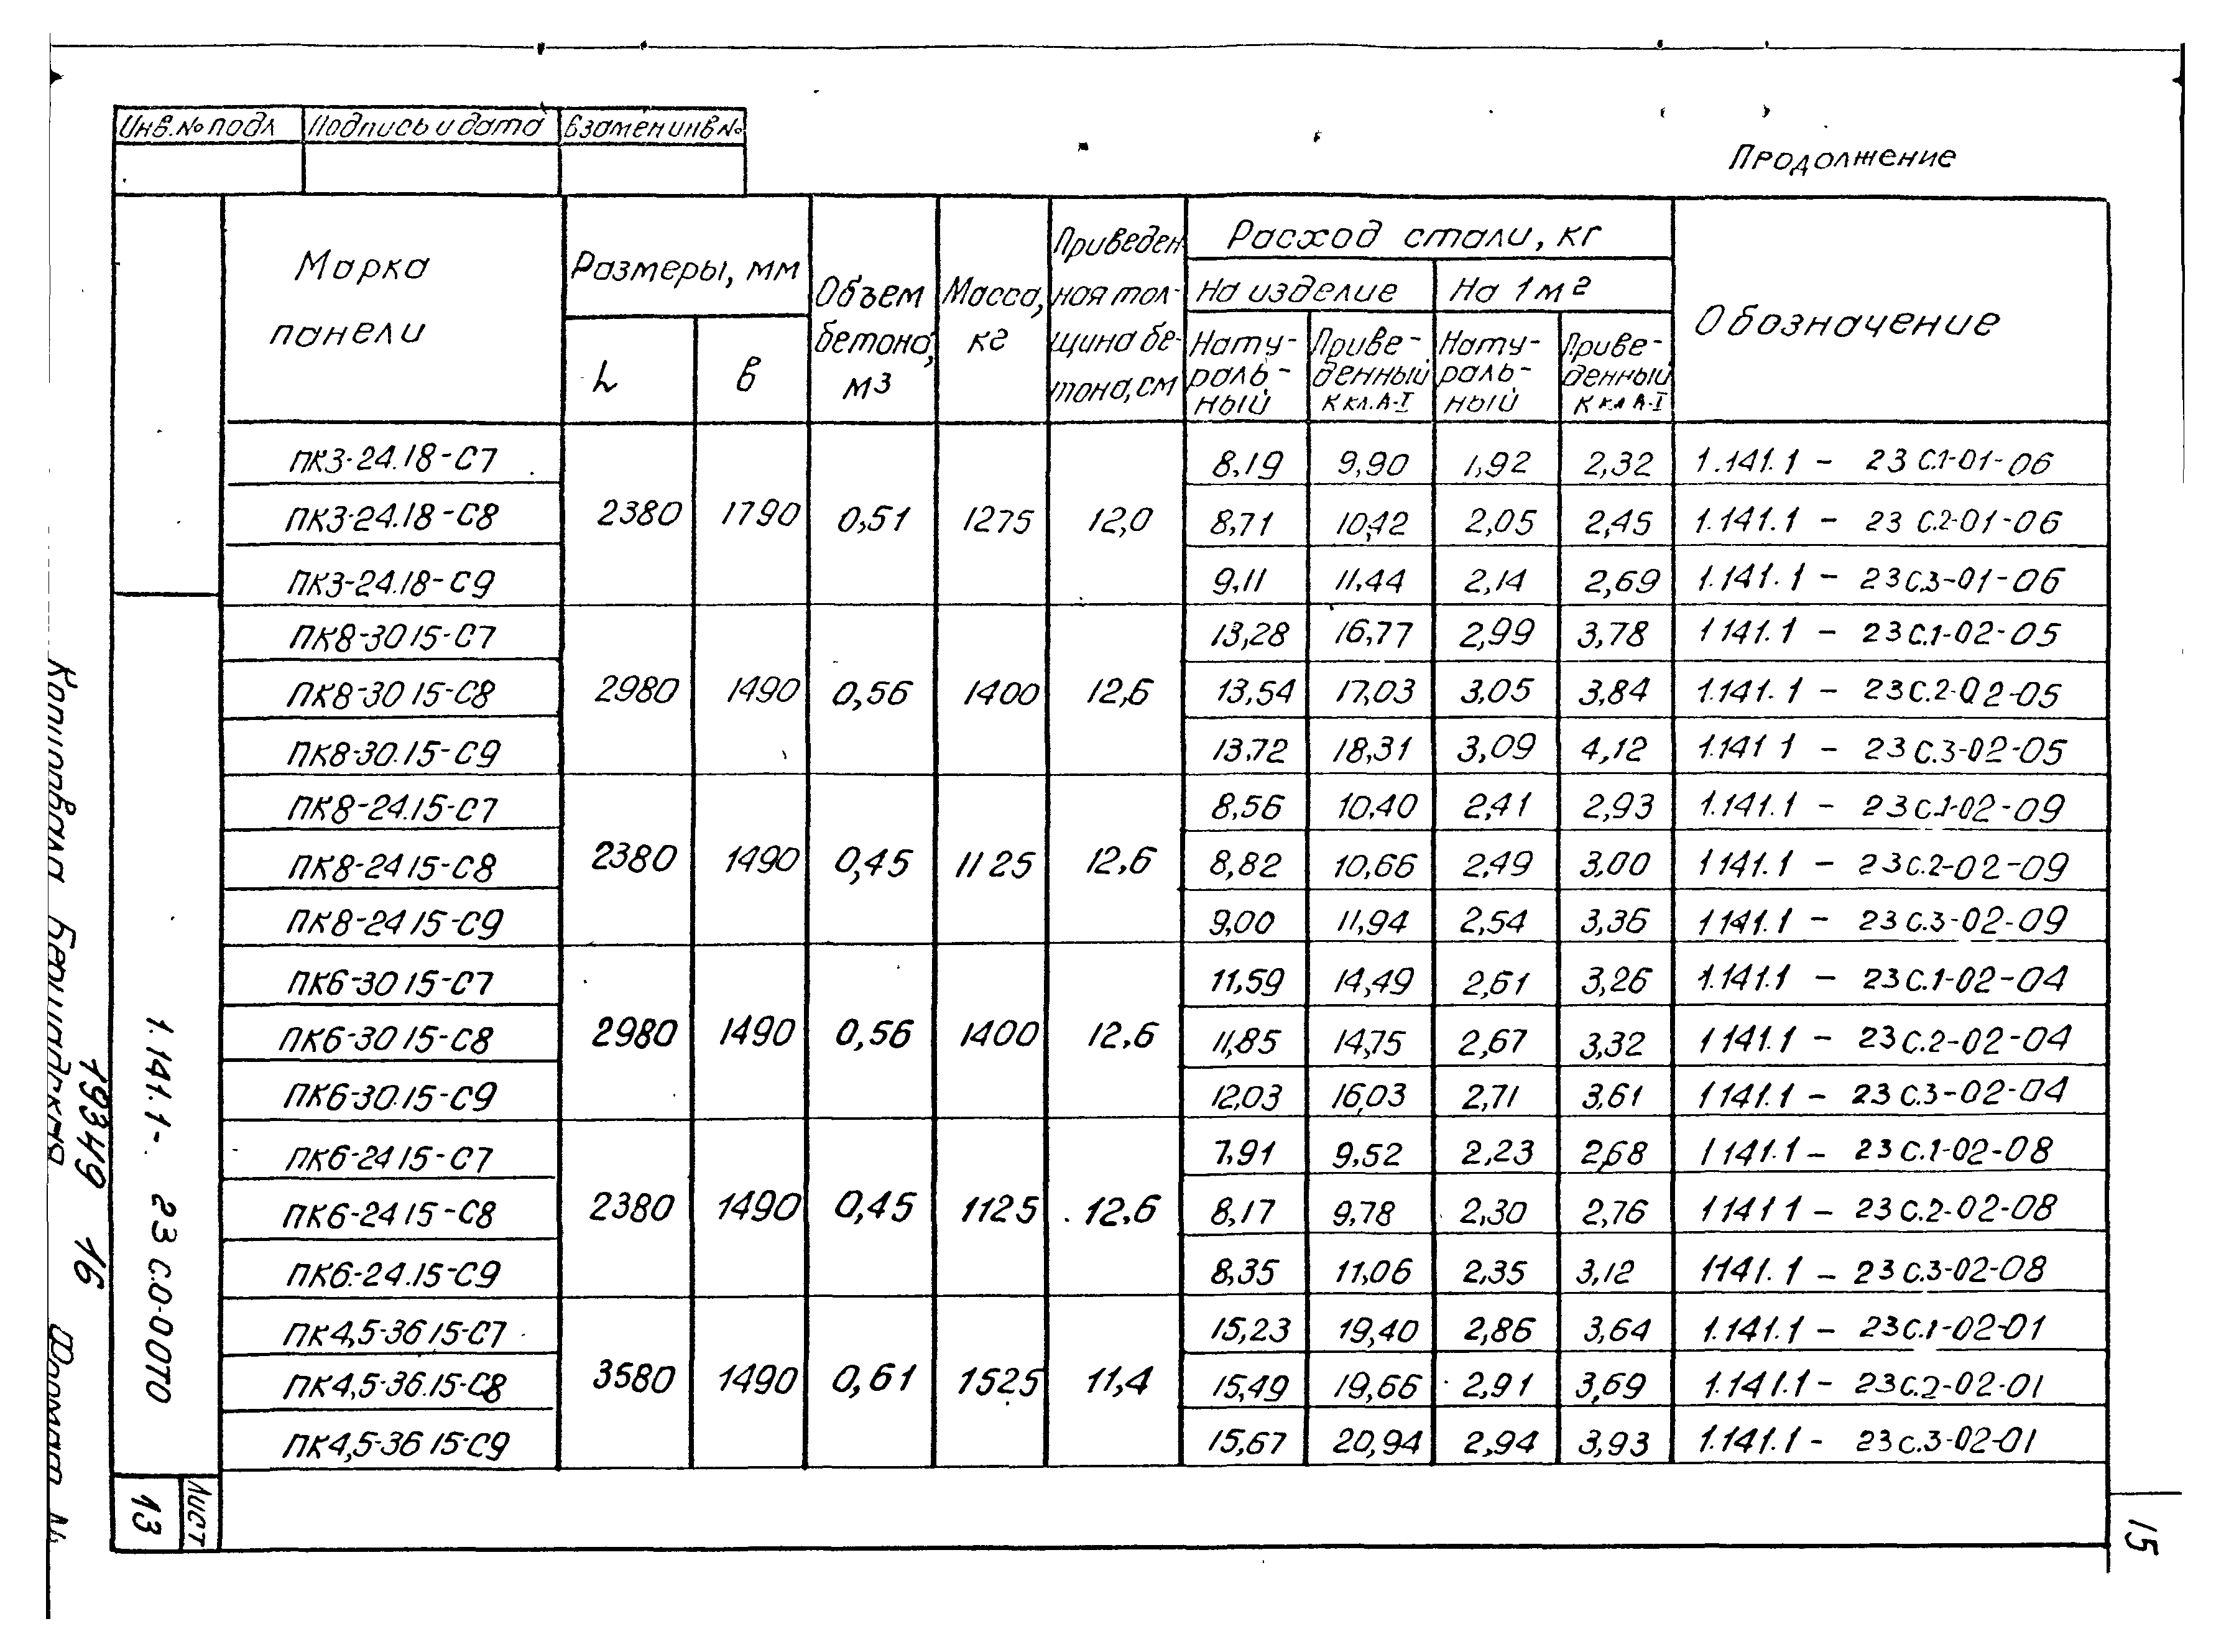 Инв.№ подл Подпись и дата Взамен инв №
Продолжение
Марка панели
Размеры, мм
L B
Объем бетона, м3
Масса, кг
Приведенная толщина бетона, см
Расход стали, кг
На изделие На 1м2
Натуральный Приведенный к кл. А-I Натуральный Приведенный к кл А-I
Обозначение
ПК3-24.18-С7 8,19 9,90 1,92 2,32 1.141.1 - 23 С.1-01-06
ПК3-24.18-С8 2380 1790 0,51 1275 12,0 8,71 10,42 2,05 2,45 1.141.1 - 23 С.2-01-06
ПК3-24.18-С9 9,11 11,44 2,14 2,69 1.141.1 - 23 С.3-01-06
ПК8-30 15-С7 13,28 16,77 2,99 3,78 1 141.1 - 23 С.1-02-05
ПК8-30 15-С8 2980 1490 0,56 1400 12,6 13,54 17,03 3,05 3,84 1.141.1 - 23 С.2-02-05
ПК8-30.15-С9 13,72 18,31 3,09 4,12 1.141 1 - 23 С.3-02-05
ПК8-24.15-С7 8,56 10,40 2,41 2,93 1.141.1 - 23 С.1-02-09
ПК8-24 15-С8 2380 1490 0,45 1125 12,6 8,82 10,66 2,49 3,00 1 141.1 - 23 С.2-02-09
ПК8-24 15-С9 9,00 11,94 2,54 3,36 1 141.1 - 23 С.3-02-09
ПК6-30 15-С7 11,59 14,49 2,61 3,26 1.141.1 - 23 С.1-02-04
ПК6-30 15-С8 2980 1490 0,56 1400 12,6 11,85 14,75 2,67 3,32 1 141.1 - 23 С.2-02-04
ПК6-30.15-С9 12,03 16,03 2,71 3,61 1 141.1 - 23 С.3-02-04
ПК6-24 15-С7 7,91 9,52 2,23 2,68 1 141.1 - 23 С.1-02-08
ПК6-24 15-С8 2380 1490 0,45 1125 12,6 8,17 9,78 2,30 2,76 1 141 1 - 23 С.2-02-08
ПК6-24.15-С9 8,35 11,06 2,35 3,12 1141.1 - 23 С.3-02-08
ПК4,5-36 15-С7 15,23 19,40 2,86 3,64 1.141.1 - 23 С.1-02-01
ПК4,5-36.15-С8 3580 1490 0,61 1525 11,4 15,49 19,66 2,91 3,69 1.141.1 - 23 С.2-02-01
ПК4,5-36 15-С9 15,67 20,94 2,94 3,93 1.141.1 - 23 С.3-02-01
1.141.1 - 23 С.0-00ТО
Лист
13
Копировала
19349 16
Формат
15